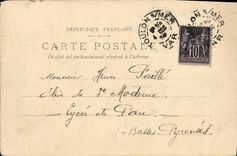 TOULON S/MER
VAR
RÉPUBLIQUE FRANÇAISE
CARTE POSTALE
Ce côté est exclusivement réservé à l'adresse.
10
Monsieur Henri
Élève de 3e Moderne
Lycée de Pau
(Basses Pyrénées)